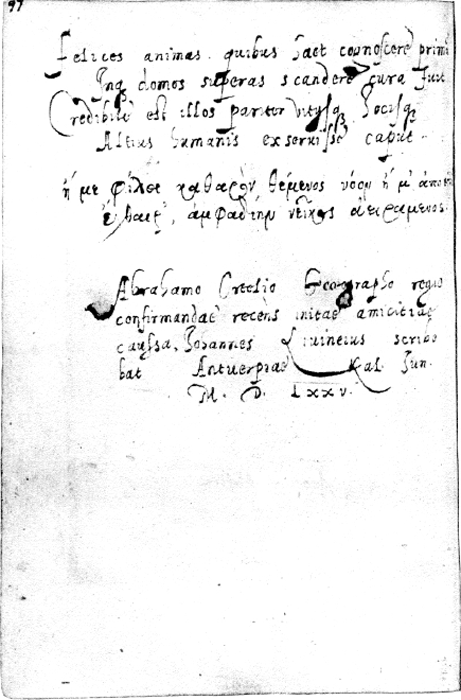 97
Felices animas quibus haec cognoscere primi
Inq domos superas scandere cura fuit
Credibile est illos pariter vitijsq locisq
Altius humanis exseruisse caput.
ἤ με φίλει καθαρὸν θέμενος νόον ἤ μ' ἀποειπὼν
ἔχθαιρ', ἀμφαδίην νεῖκος ἀειράμενος.
Abrahamo Ortelio Geographo regio
confirmandae recèns initae amicitiae
caussa, Johannes Liuineius scribe
bat Antuerpiae Kal. Jun.
M. D. LXXV.